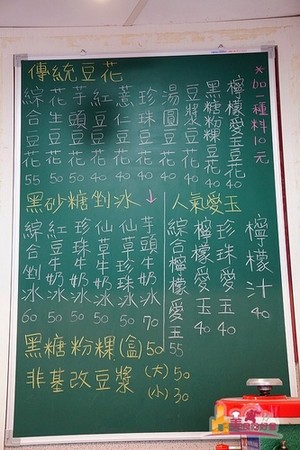 傳統豆花
綜合豆花 55
花生豆花 50
芋頭豆花 40
紅豆豆花 40
薏仁豆花 40
珍珠豆花 40
湯圓豆花 40
豆漿豆花 40
黑糖粉粿豆花 40
檸檬愛玉豆花 40
*加一種料10元
黑砂糖剉冰↓
綜合剉冰 60
紅豆牛奶冰 50
珍珠牛奶冰 50
仙草牛奶冰 50
仙草珍珠冰 50
芋頭牛奶冰 70
人氣愛玉
綜合檸檬愛玉 55
檸檬愛玉 40
珍珠愛玉 40
檸檬汁 40
黑糖粉粿(盒)50
非基改豆漿 (大)50
(小)30